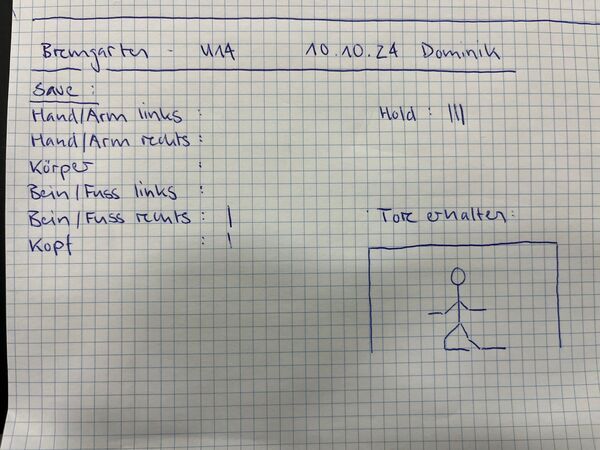 Bremgarten - U14 10.10.24 Dominik
Save :
Hand/Arm links : Hold : |||
Hand/Arm rechts :
Körper :
Bein/Fuss links :
Bein/Fuss rechts : | Tore erhalten :
Kopf : |